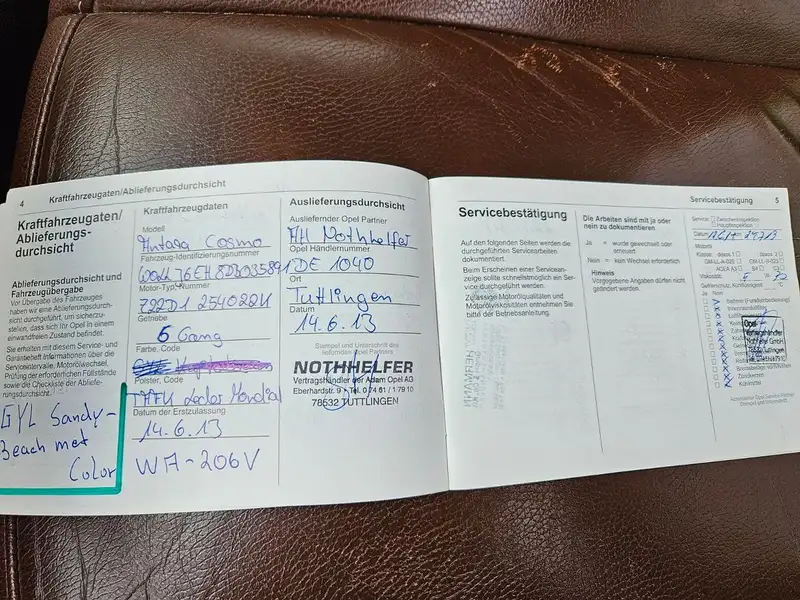 4
Kraftfahrzeugaten/Ablieferungsdurchsicht
Kraftfahrzeugaten/
Ablieferungs-
durchsicht
Ablieferungsdurchsicht und
Fahrzeugübergabe
Vor Übergabe des Fahrzeuges
haben wir eine Ablieferungsdurch-
sicht durchgeführt, um sicherzu-
stellen, dass sich Ihr Opel in einem
einwandfreien Zustand befindet.
Sie erhalten mit diesem Service- und
Garantieheft Informationen über die
Serviceintervalle. Motorölwechsel,
Prüfung der erforderlichen Füllstände
sowie die Checkliste der Abliefe-
rungsdurchsicht.
GYL Sandy-
Beach met
Color
Kraftfahrzeugdaten
Modell
Antara Cosmo
Fahrzeug-Identifizierungsnummer
Motor-Typ/Nummer
Getriebe
6 Gang
Farbe, Code
Polster, Code
Leder Mondial
Datum der Erstzulassung
14.6.13
WA-206V
Auslieferungsdurchsicht
Ausliefernder Opel Partner
AH Nothhelfer
Opel Händlernummer
DE 1040
Ort
Tuttlingen
Datum
14.6.13
Stempel und Unterschrift des
liefernden Opel Partners
NOTHHELFER
Vertragshändler der Adam Opel AG
Eberhardstr. 9 • Tel. 0 74 61 / 1 79 10
78532 TUTTLINGEN
Servicebestätigung
5
Servicebestätigung
Auf den folgenden Seiten werden die
durchgeführten Servicearbeiten
dokumentiert.
Beim Erscheinen einer Servicean-
zeige sollte schnellstmöglich ein Ser-
vice durchgeführt werden.
Zulässige Motorölqualitäten und
Motorölviskositäten entnehmen Sie
bitte der Betriebsanleitung.
Die Arbeiten sind mit ja oder
nein zu dokumentieren
Ja = wurde gewechselt oder
erneuert
Nein = kein Wechsel erforderlich
Hinweis
Vorgegebene Angaben dürfen nicht
geändert werden.
Service: Zwischeninspektion
Hauptinspektion
Datum
Motoröl
Viskosität
Ja Nein